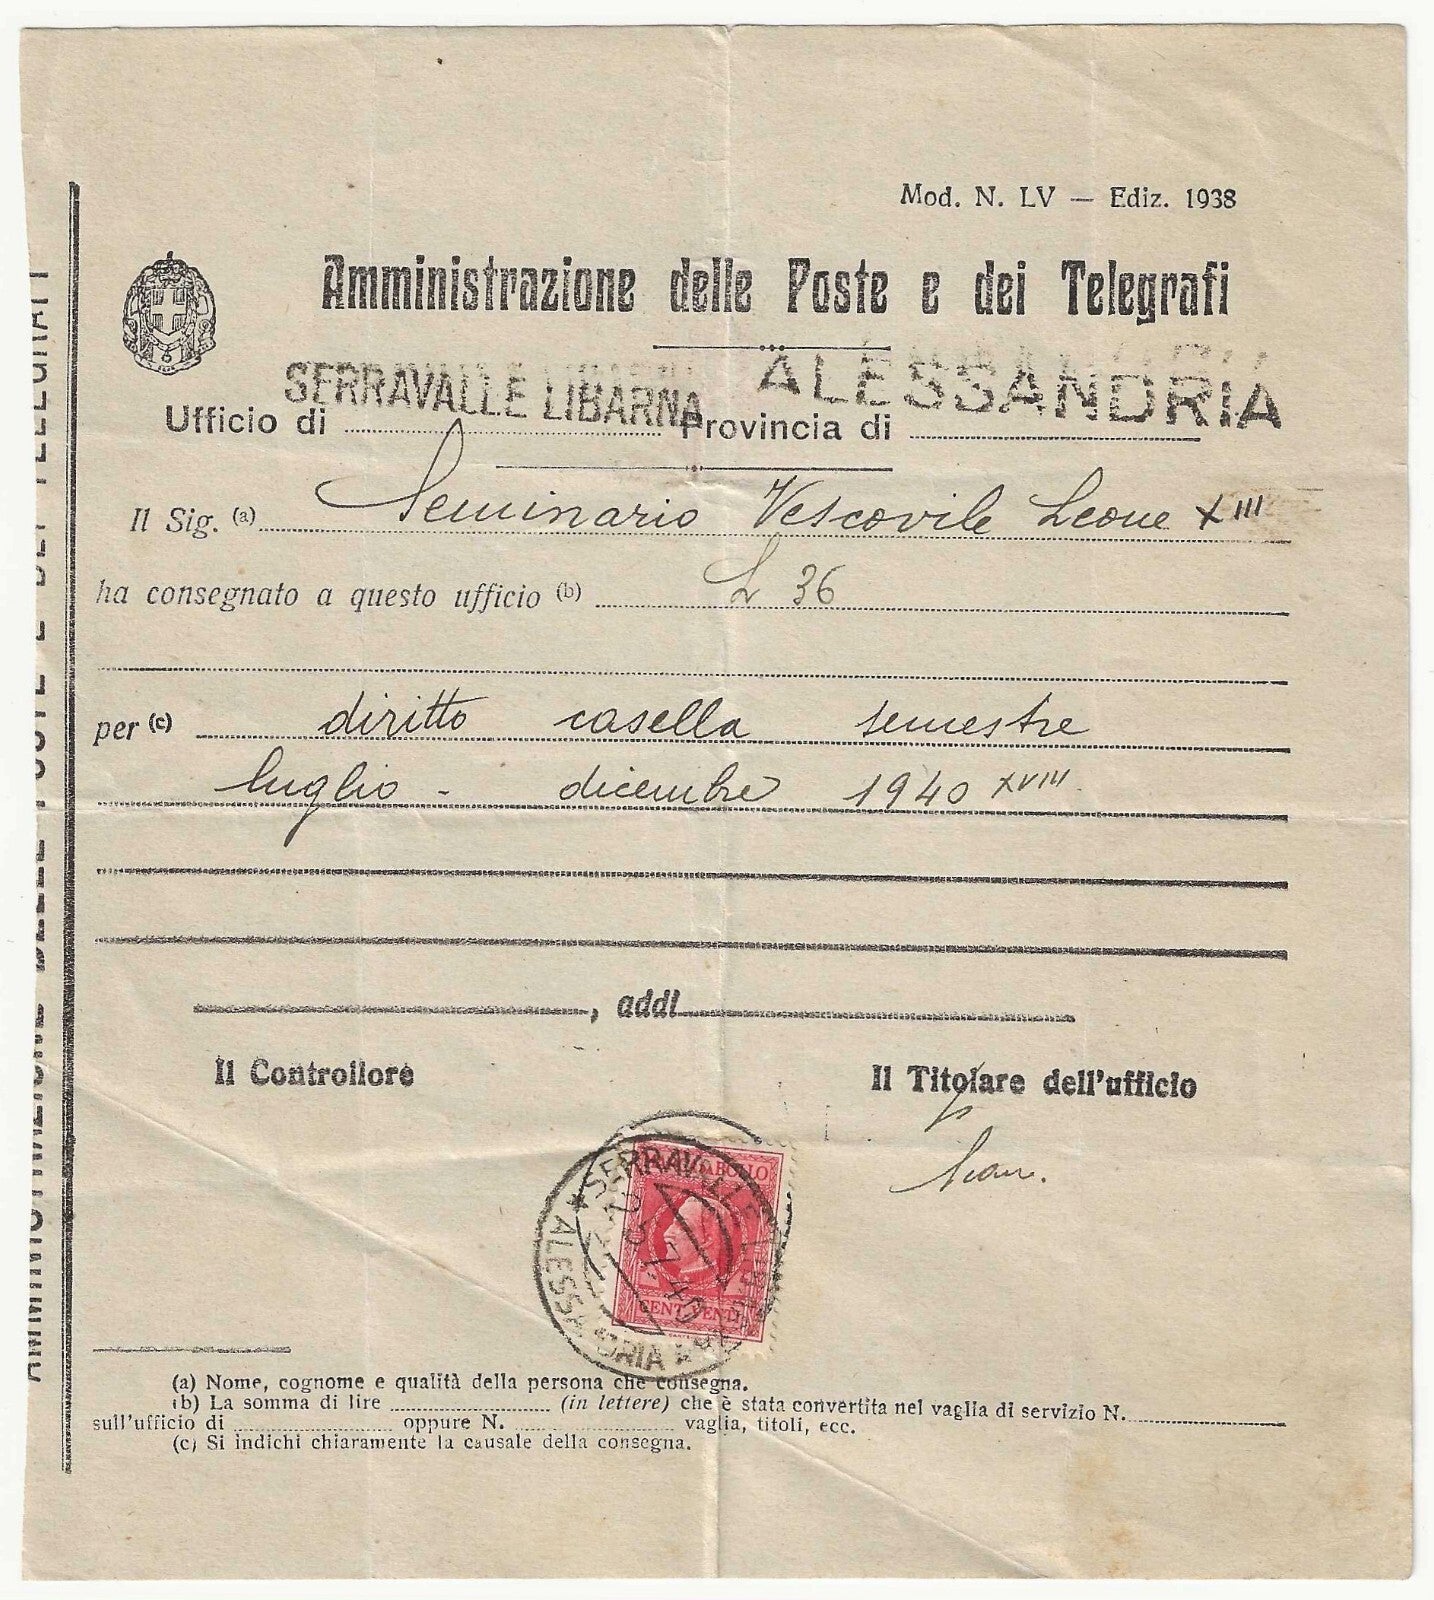 Mod. N. LV — Ediz. 1938
Amministrazione delle Poste e dei Telegrafi
SERRAVALLE LIBARNA ALESSANDRIA
Ufficio di Provincia di
Il Sig. (a) Seminario Vescovile Leone XIII
ha consegnato a questo ufficio (b) L 36
per (c) diritto casella semestre
luglio - dicembre 1940 XVIII
, addì
Il Controllore Il Titolare dell'ufficio
SERRAVALLE
7.40
CENT. VENTI
ALESSANDRIA
(a) Nome, cognome e qualità della persona che consegna.
(b) La somma di lire (in lettere) che è stata convertita nel vaglia di servizio N.
sull'ufficio di oppure N. vaglia, titoli, ecc.
(c) Si indichi chiaramente la causale della consegna.
AMMINISTRAZIONE DELLE POSTE E DEI TELEGRAFI